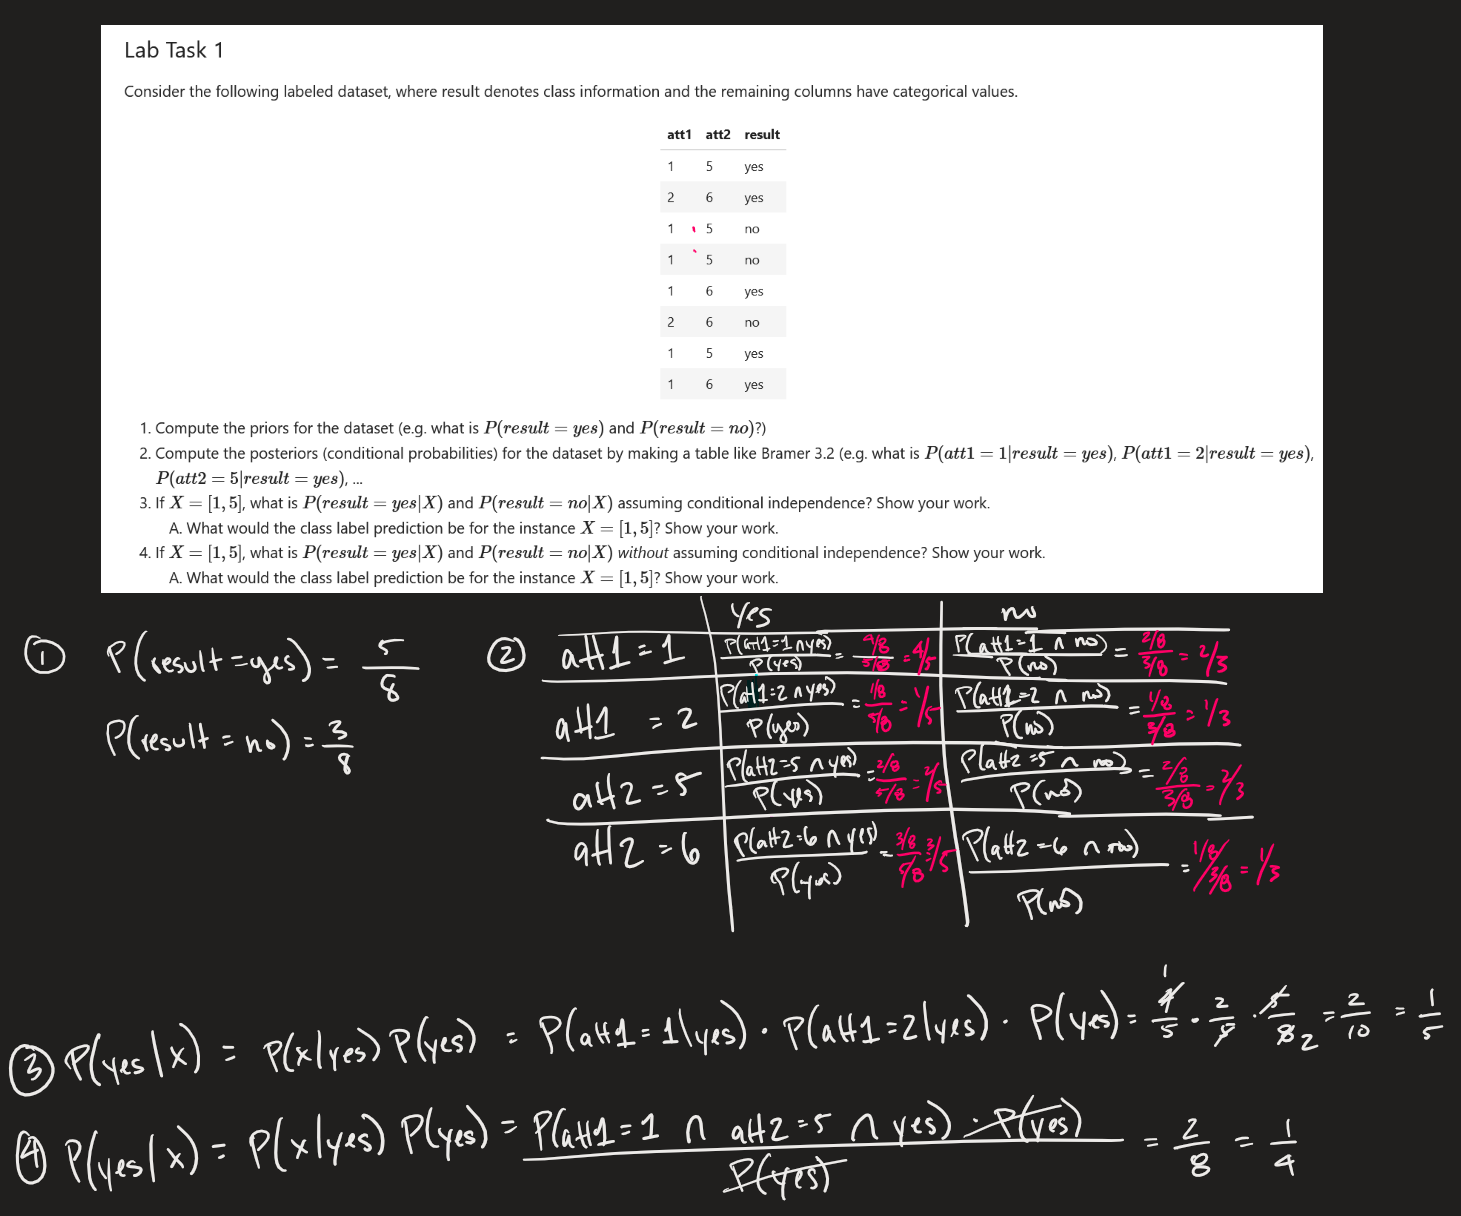 Lab Task 1
Consider the following labeled dataset, where result denotes class information and the remaining columns have categorical values.
att1 att2 result
1 5 yes
2 6 yes
1 5 no
1 5 no
1 6 yes
2 6 no
1 5 yes
1 6 yes
1. Compute the priors for the dataset (e.g. what is P(result = yes) and P(result = no)?)
2. Compute the posteriors (conditional probabilities) for the dataset by making a table like Bramer 3.2 (e.g. what is P(att1 = 1|result = yes), P(att1 = 2|result = yes),
P(att2 = 5|result = yes), ...
3. If X = [1, 5], what is P(result = yes|X) and P(result = no|X) assuming conditional independence? Show your work.
A. What would the class label prediction be for the instance X = [1, 5]? Show your work.
4. If X = [1, 5], what is P(result = yes|X) and P(result = no|X) without assuming conditional independence? Show your work.
A. What would the class label prediction be for the instance X = [1, 5]? Show your work.
① P(result = yes) = 5/8
P(result = no) = 3/8
② yes no
att1 = 1 P(att1=1 ∩ yes)/P(yes) = 4/8/5/8 = 4/5 P(att1=1 ∩ no)/P(no) = 2/8/3/8 = 2/3
att1 = 2 P(att1=2 ∩ yes)/P(yes) = 1/8/5/8 = 1/5 P(att1=2 ∩ no)/P(no) = 1/8/3/8 = 1/3
att2 = 5 P(att2=5 ∩ yes)/P(yes) = 2/8/5/8 = 2/5 P(att2=5 ∩ no)/P(no) = 2/8/3/8 = 2/3
att2 = 6 P(att2=6 ∩ yes)/P(yes) = 3/8/5/8 = 3/5 P(att2=6 ∩ no)/P(no) = 1/8/3/8 = 1/3
③ P(yes|x) = P(x|yes) P(yes) = P(att1=1|yes) · P(att1=2|yes) · P(yes) = 4/5 · 2/5 · 5/8 = 2/10 = 1/5
1
2
④ P(yes|x) = P(x|yes) P(yes) = P(att1=1 ∩ att2=5 ∩ yes) · P(yes)/P(yes) = 2/8 = 1/4